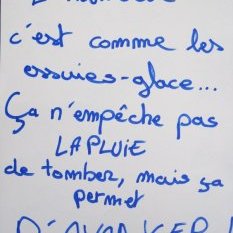 c'est comme les
essuies-glace...
Ça n'empêche pas
LA PLUIE
de tomber, mais ça
permet
D'AVANCER !